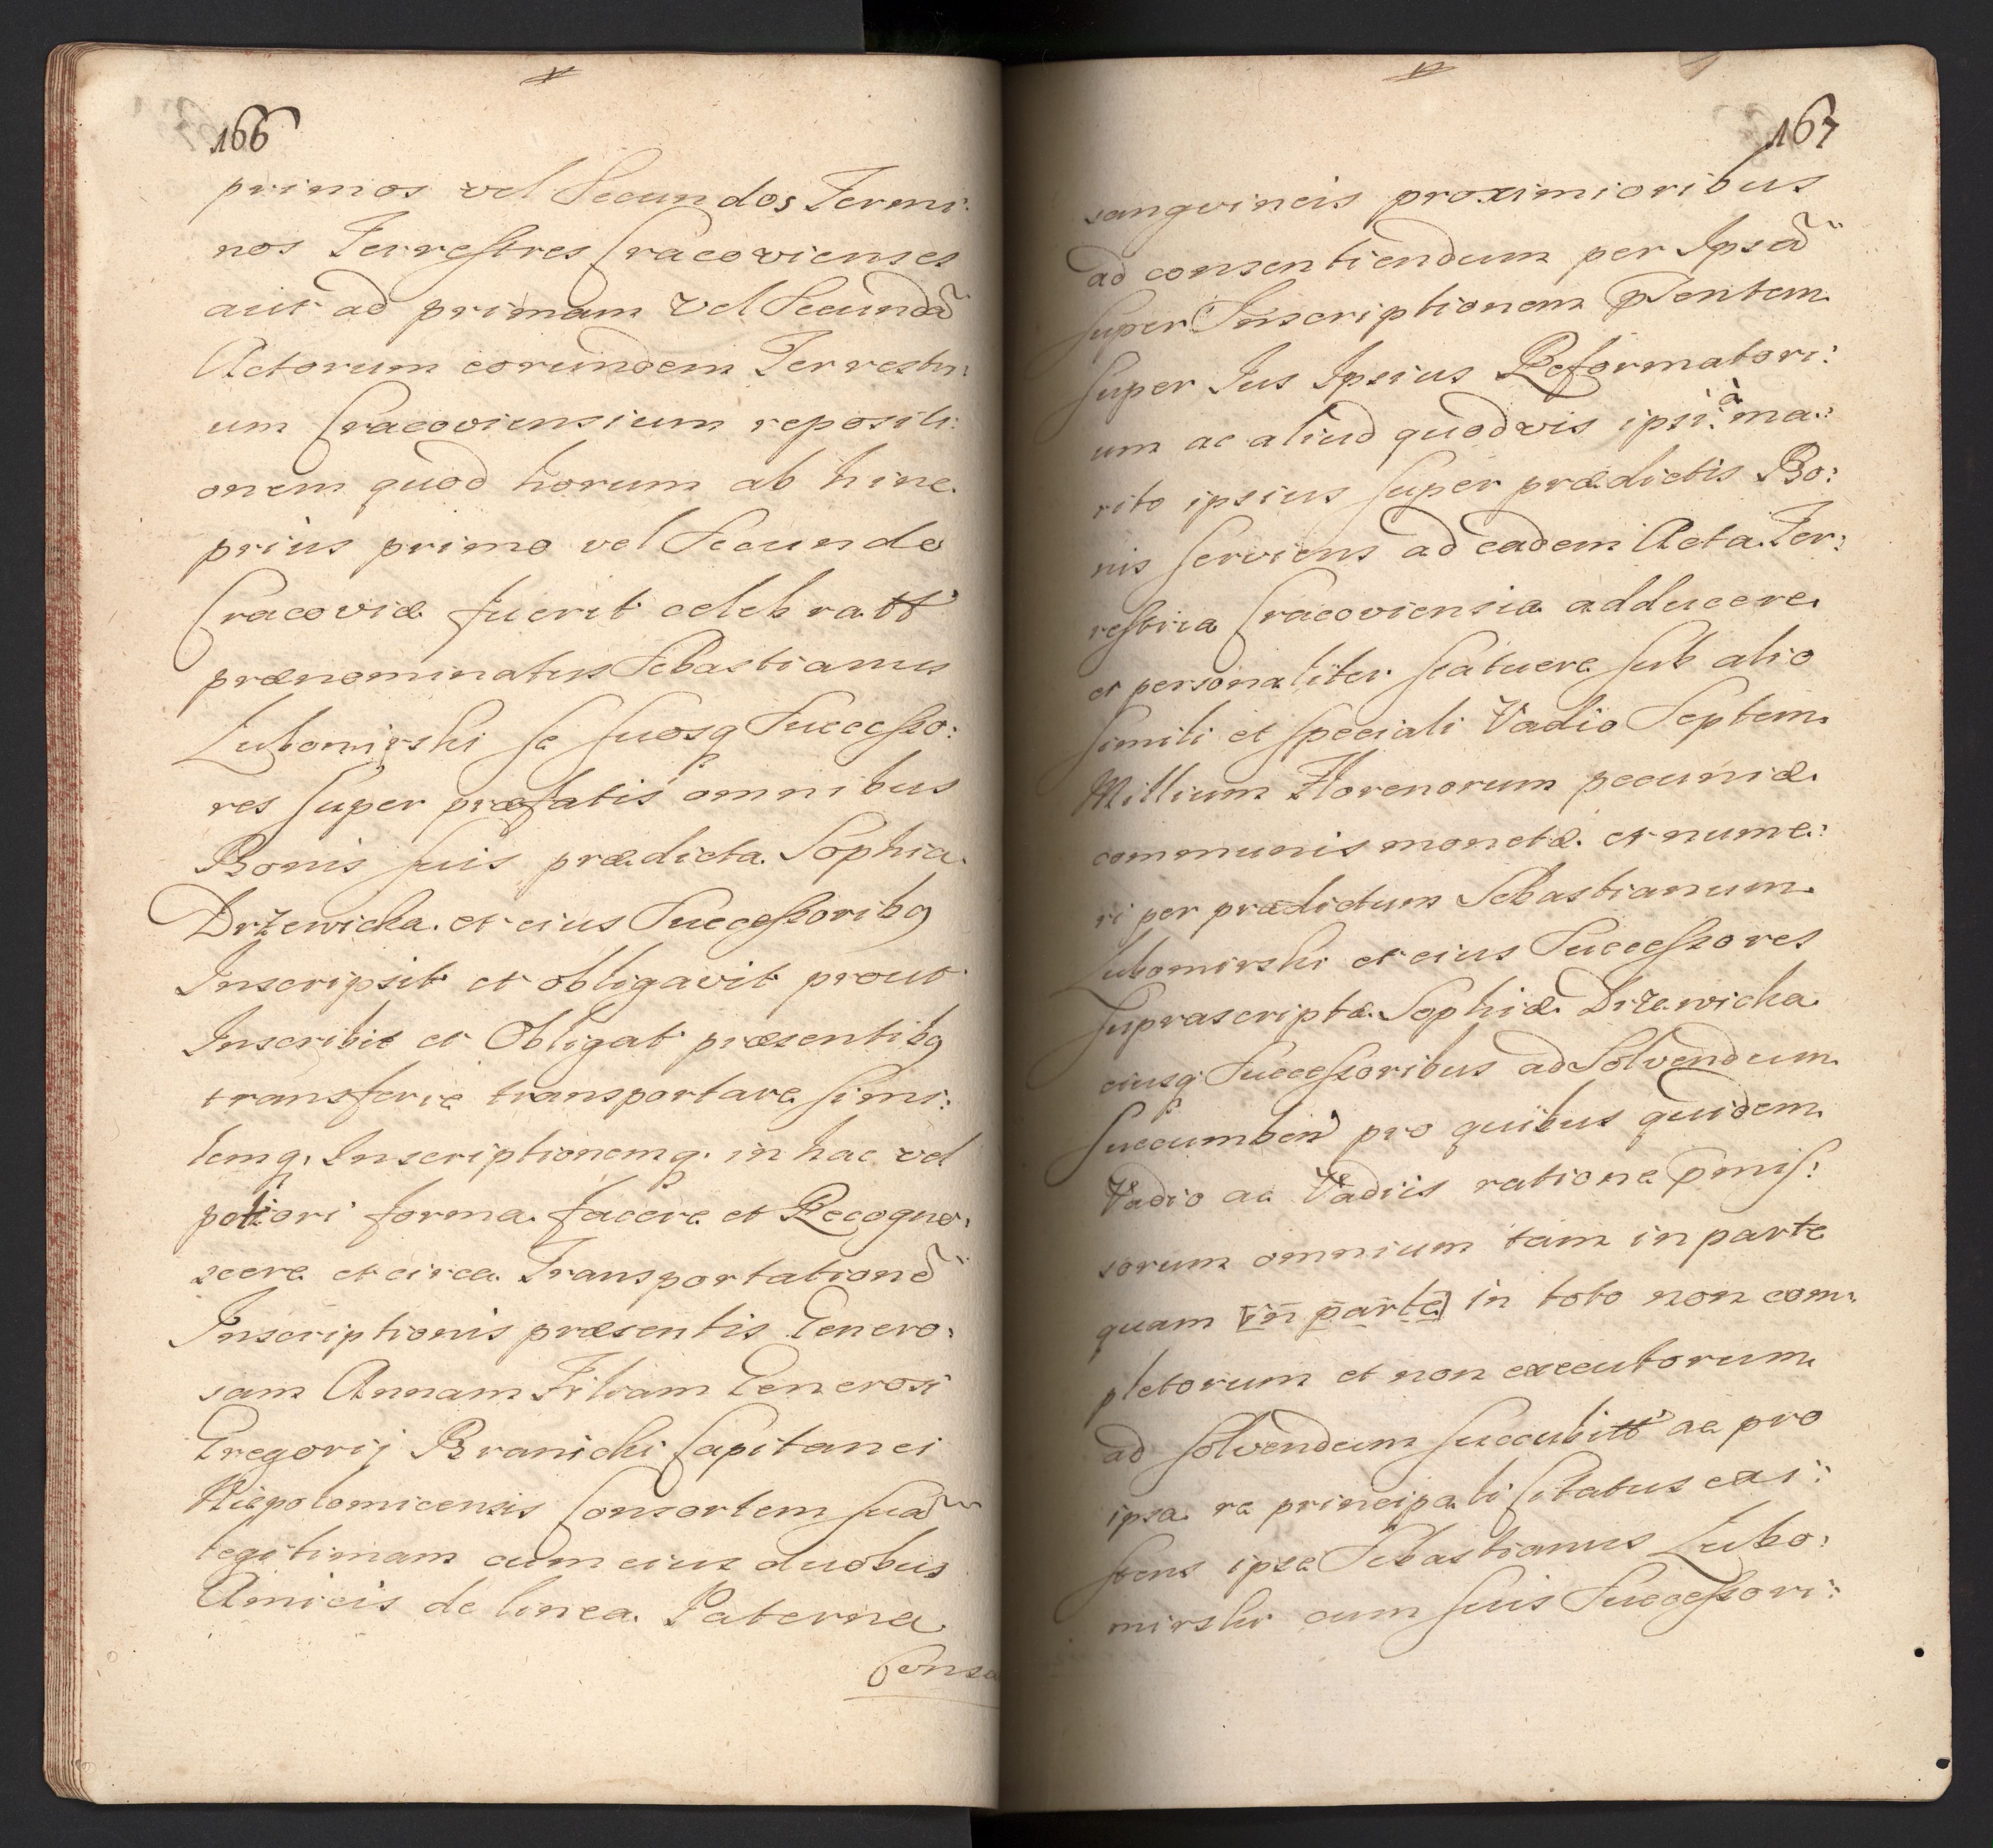 166
primos vel Secundos Termi:
nos Terrestres Cracovienses
aut ad primam vel Secundã
Actorum eorundem Terrestri:
um Cracoviensium repositi:
onem quod horum ab hinc
prius primo vel Secundo
Cracoviæ fuerit celebratt
prænominatus Sebastianus
Lubomirski se suosq Successo:
res super præfatis omnibus
Bonis suis prædicta Sophia
Drzewicka et eius Successoribq
Inscripsit et obligavit prout
Inscribit et Obligat præsentibq
transferre transportare simi:
lemq. Inscriptionemq. in hac vel
potiori forma facere et Recogno:
scere et circa Transportationẽ
Inscriptionis præsentis Genero:
sam Annam Filiam Generosi
Gregorij Branicki Capitanei
Niepolomicensis Consortem suã
legitimam cum eius duobus
Amicis de linea Paterna
Consa
167
sangvineis proximioribus
ad consentiendum per Ipsã
super Inscriptionem p̃sentem
super Jus Ipsius Reformatori:
um ac aliud quodvis ipsi à ma:
rito ipsius super prædictis Bo:
nis serviens ad eadem Acta Ter:
restria Cracoviensia adducere
et personaliter statuere sub alio
simili et speciali Vadio Septem
Millium Florenorum pecuniæ
communis monetæ et nume:
ri per prædictum Sebastianum
Lubomirski et eius Successores
suprascriptæ Sophiæ Drzewicka
eiusq Successoribus ad Solvendum
succumben pro quibus quidem
Vadio ac Vadiis ratione p̃mis:
sorum omnium tam in parte
quam [in parte] in toto non com:
pletorum et non executorum
ad solvendum succubitt ac pro
ipsa re principali sitatus exi:
stens ipse Sebastianus Lubo:
mirski cum suis Successori: